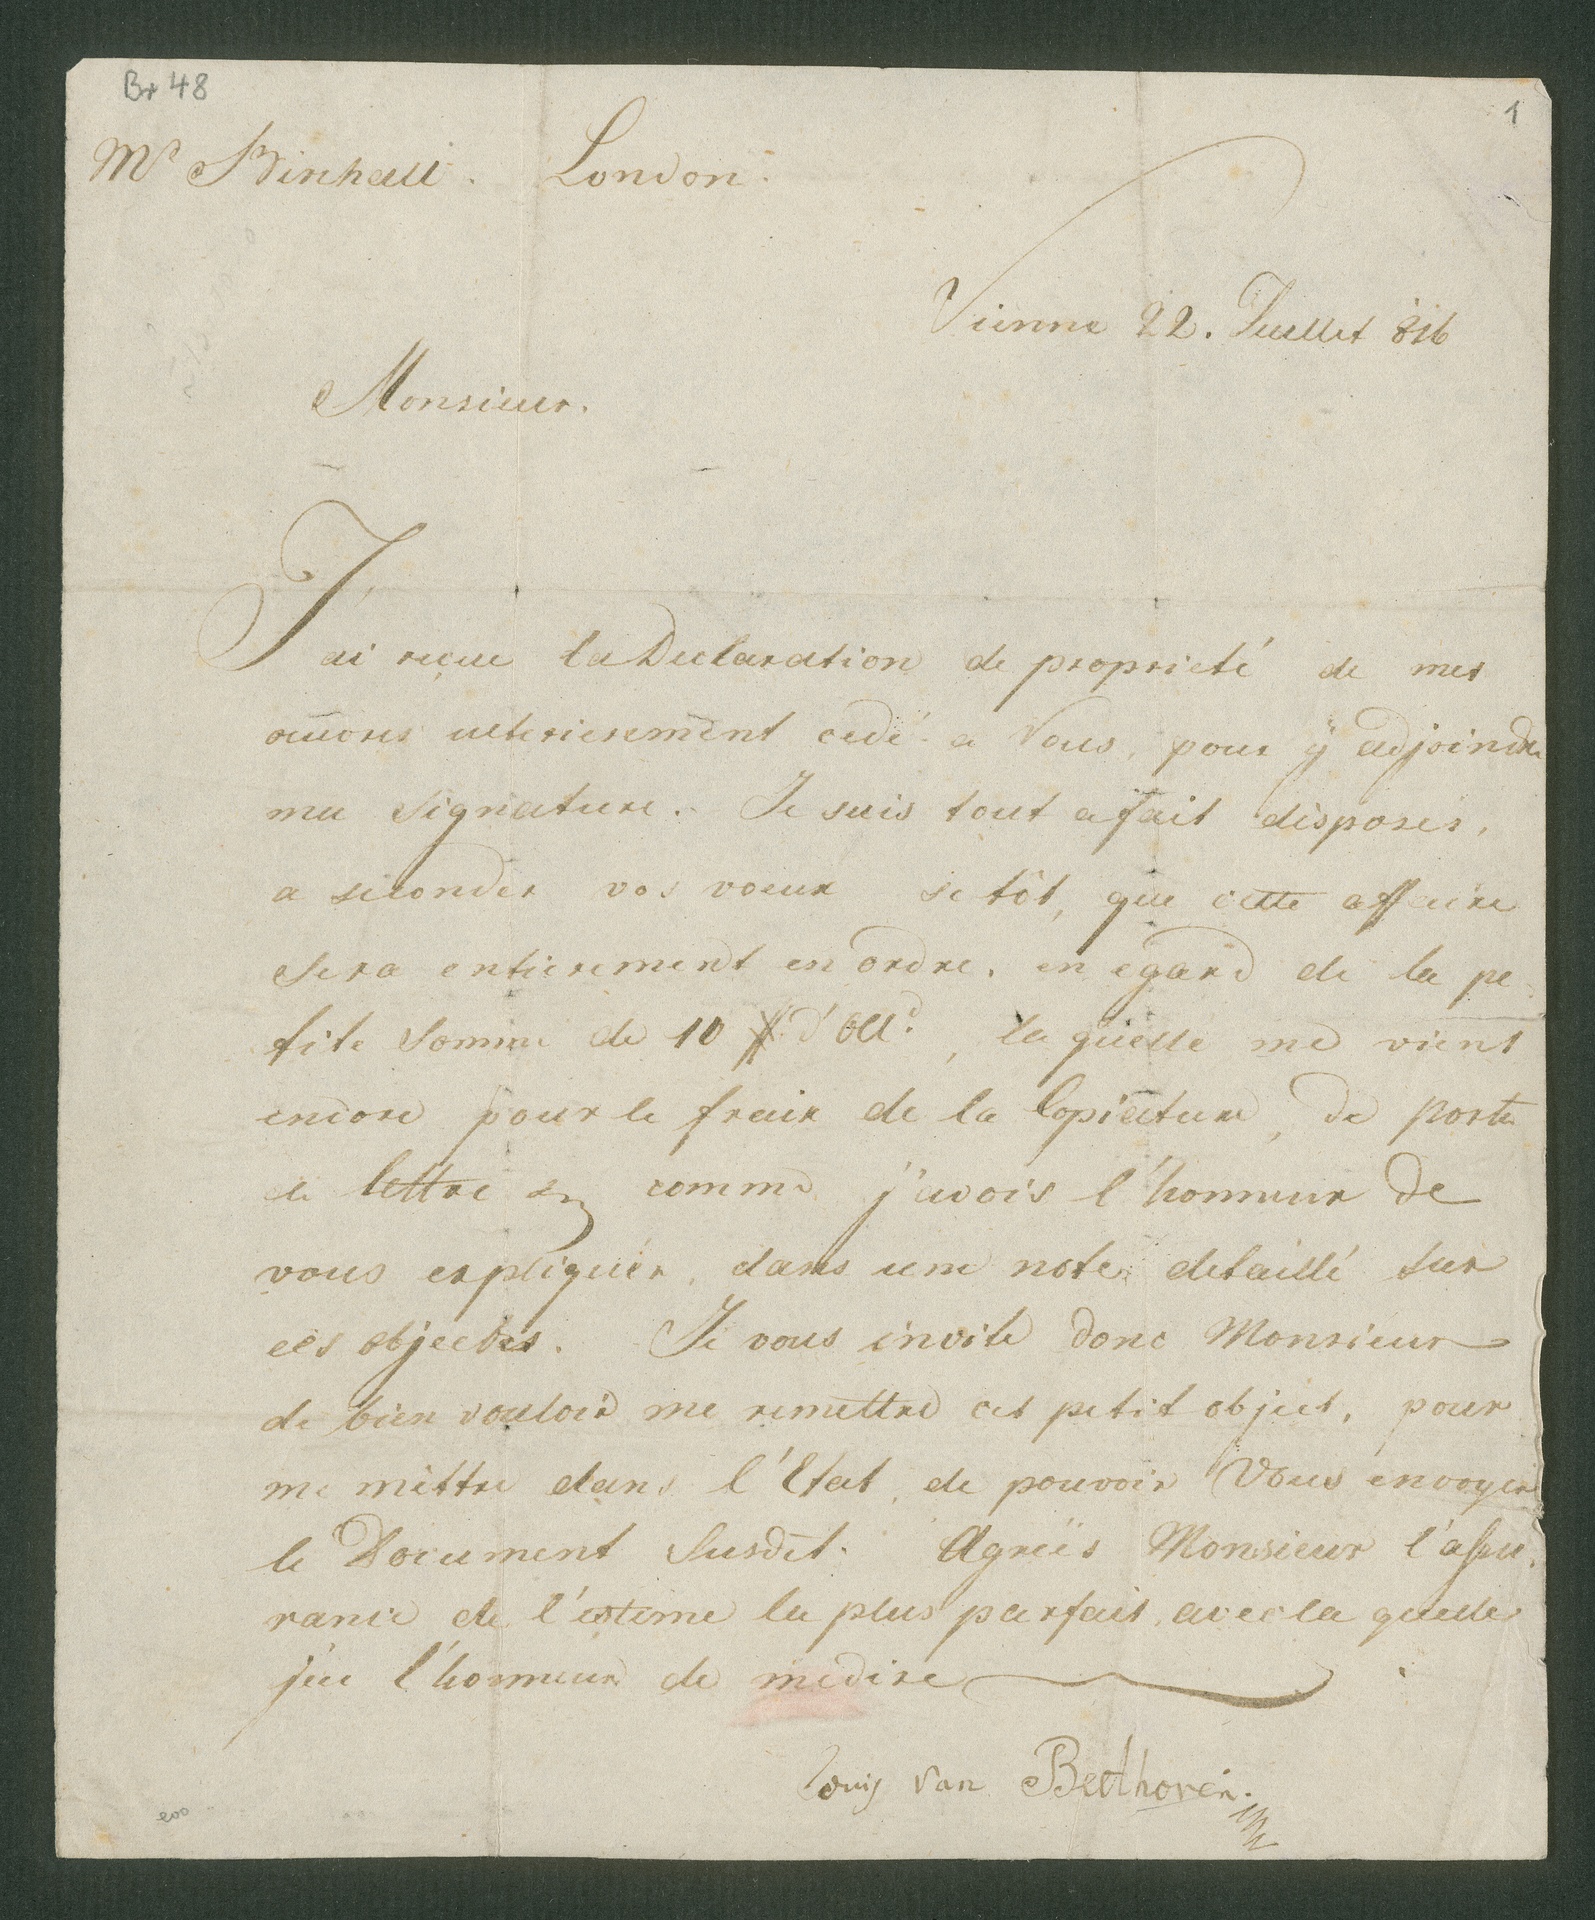 Br 48
1
Mr Birchall. London.
Vienne 22. Juillet 816
Monsieur.
J'ai reçue la Declaration de proprieté de mes
œuvres ulterierement cedé a Vous, pour ÿ adjoindre
ma signature. Je suis tout a fait disposer,
a seconder vos voeux se tôt, que cette affaire
sera entierement en ordre, en egard de la pe-
tite somme de 10 # d'or, la quelle me vient
encore pour le fraix de la Copieture, de poste
de lettre etc comme j'avois l'honneur de
vous expliquér, dans une note detaillé sur
ces objectes. Je vous invite donc Monsieur
de bien vouloir me remettre cet petit object, pour
me mettre dans l'Etat de pouvoir Vous envoyer
le Document susdit. Agreés Monsieur l'assu-
rance de l'estime la plus parfait avec la quelle
j'ai l'honneur de me dire
Louis van Beethoven.
200